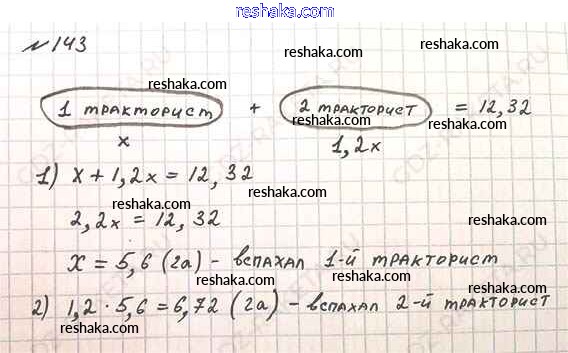 reshaka.com
№143 reshaka.com
reshaka.com reshaka.com
1 тракторист + 2 тракторист = 12,32
reshaka.com reshaka.com
x 1,2x
1) x + 1,2x = 12,32
reshaka.com reshaka.com
2,2x = 12,32
reshaka.com reshaka.com
x = 5,6 (га) - вспахал 1-й тракторист
reshaka.com reshaka.com
2) 1,2 · 5,6 = 6,72 (га) - вспахал 2-й тракторист
reshaka.com reshaka.com